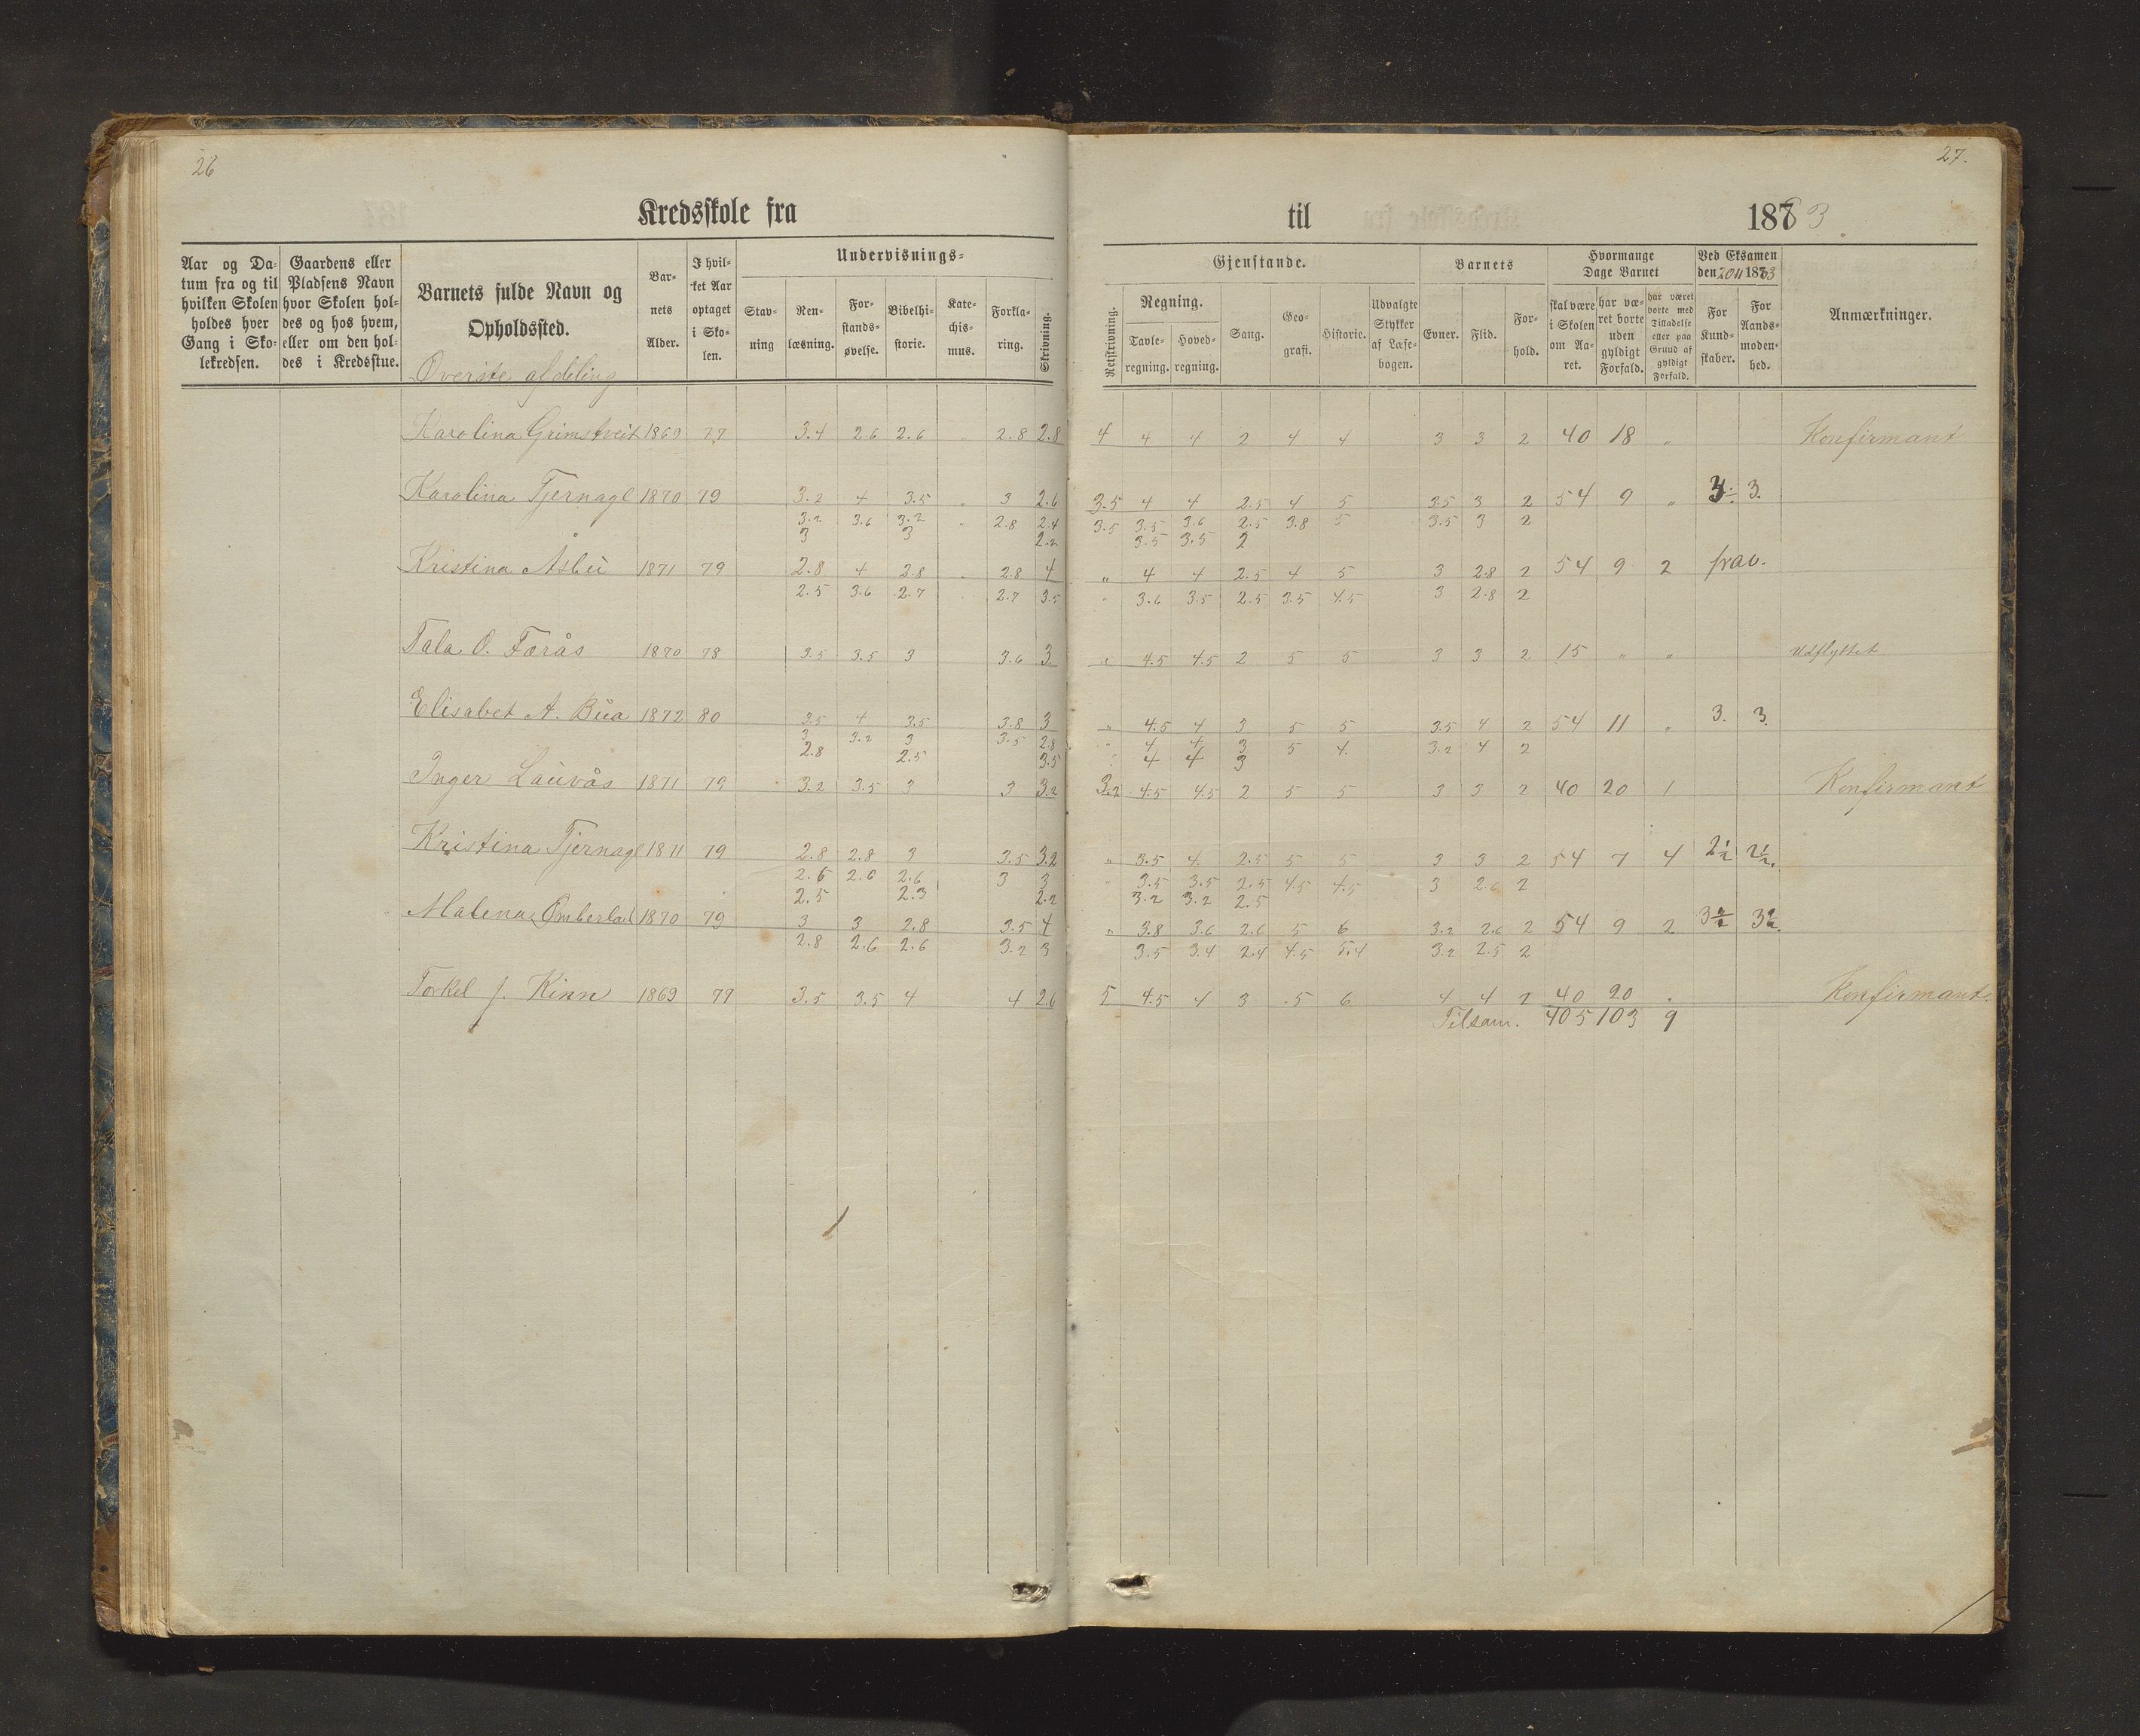 26
27.
Kredsskole fra til 1883
Aar og Datum fra og til hvilken Skolen holdes hver Gang i Skolekredsen.
Gaardens eller Pladsens Navn hvor Skolen holdes og hos hvem, eller om den holdes i Kredsstue.
Barnets fulde Navn og Opholdssted.
Barnets Alder.
I hvilket Aar optaget i Skolen.
Undervisnings-
Stavning
Renlæsning.
Forstandsøvelse.
Bibelhistorie.
Katechismus.
Forklaring.
Skrivning.
Gjenstande.
Retskrivning.
Regning.
Tavleregning.
Hovedregning.
Sang.
Geografi.
Historie.
Udvalgte Stykker af Læsebogen.
Barnets
Evner.
Flid.
Forhold.
Hvormange Dage Barnet
skal være i Skolen om Aaret.
har været borte uden gyldigt Forfald.
har været borte med Tilladelse eller paa Grund af gyldigt Forfald.
Ved Eksamen den 20/11 1883
For Kundskaber.
For Aandsmodenhed.
Anmærkninger.
Øverste afdeling
Karolina Grimstveit 1869 77 3.4 2.6 2.6 " 2.8 2.8 4 4 4 2 4 4 3 3 2 40 18 " Konfirmant
Karolina Tjernagl 1870 79 3.2 4 3.5 " 3 2.6 3.5 4 4 2.5 4 5 3.5 3 2 54 9 " 3. 3.
3.2 3.6 3.2 " 2.8 2.4 3.5 3.5 3.6 2.5 3.8 5 3.5 3 2
3 3 2.2 3.5 3.5 2
Kristina Åsbu 1871 79 2.8 4 2.8 " 2.8 4 " 4 4 2.5 4 5 3 2.8 2 54 9 2 frav.
2.5 3.6 2.7 2.7 3.5 " 3.6 3.5 2.5 3.5 4.5 3 2.8 2
Tala O. Førås 1870 78 3.5 3.5 3 3.6 3 " 4.5 4.5 2 5 5 3 3 2 15 " " Udflyttet
Elisabet A. Bua 1872 80 3.5 4 3.5 3.8 3 " 4.5 4 3 5 5 3.5 4 2 54 11 " 3. 3.
3 3.2 3 3.5 2.8 " 4 4 3 5 4. 3.2 4 2
2.8 2.5 3.5 4 4 3
Inger Lauvås 1871 79 3.2 3.5 3 3 3.2 3.2 4.5 4.5 2 5 5 3 3 2 40 20 1 Konfirmant
Kristina Tjernagl 1871 79 2.8 2.8 3 3.5 3.2 " 3.5 4 2.5 5 5 3 3 2 54 7 4 2½ 2½.
2.6 2.6 2.6 3 3 " 3.5 3.5 2.5 4.5 4.5 3 2.6 2
2.5 2.3 2.2 3.2 3.2 2.5
Malena 1870 79 3 3 2.8 3.5 4 " 3.8 3.6 2.6 5 6 3.2 2.6 2 54 9 2 3½ 3½.
2.8 2.6 2.6 3.2 3 3.5 3.4 2.4 4.5 5.4 3.2 2.5 2
Torkel J. Kinn 1869 79 3.5 3.5 4 4 2.6 5 4.5 4 3 5 6 4 4 2 40 20 " Konfirmant.
Tilsam. 405 103 9